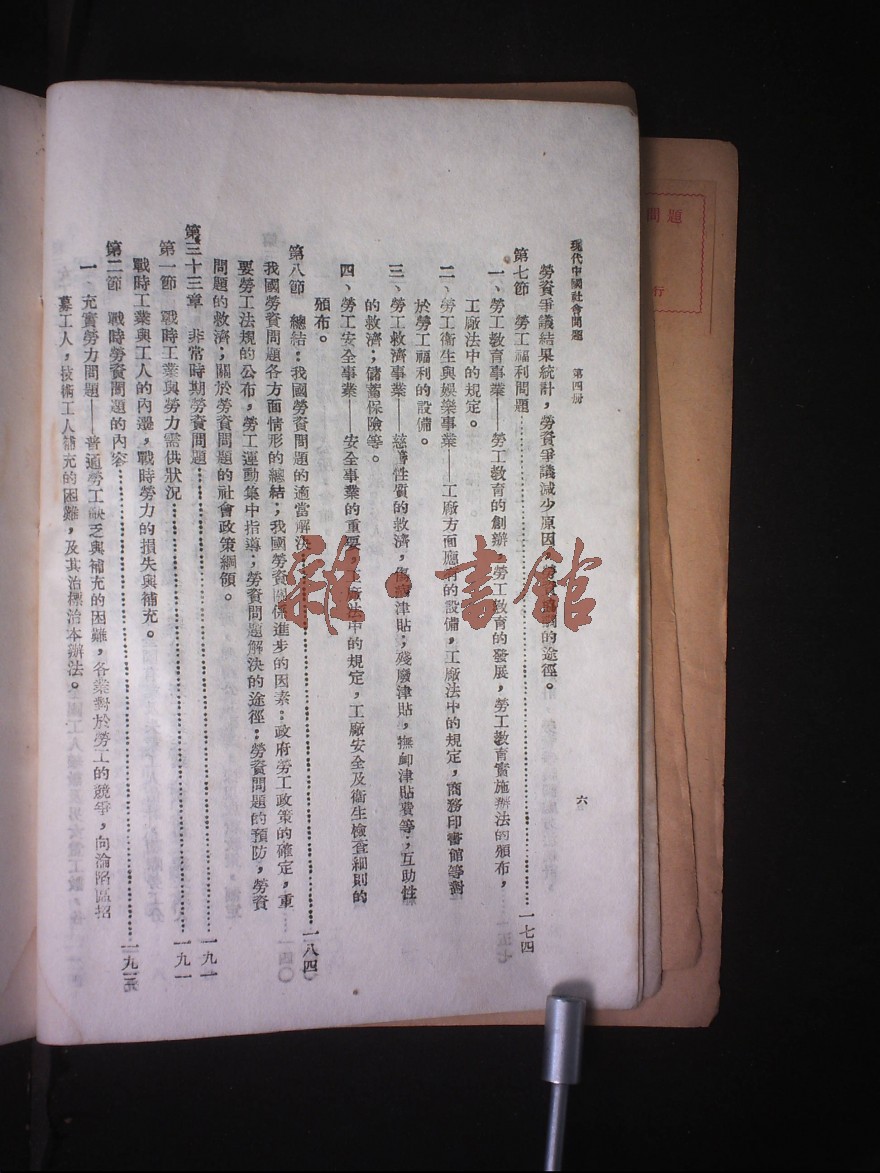 現代中國社會問題　第四册
六
勞資爭議結果統計，勞資爭議減少原因，勞資的途徑。
第七節　勞工福利問題……一七四
一、勞工教育事業——勞工教育的創辦，勞工教育的發展，勞工教育實施辦法的頒布，
工廠法中的規定。
二、勞工衞生與娛樂事業——工廠方面應有的設備，工廠法中的規定，商務印書館等對
於勞工福利的設備。
三、勞工救濟事業——慈善性質的救濟，傷病津貼；殘廢津貼，撫卹津貼費等；互助性
的救濟；儲蓄保險等。
四、勞工安全事業——安全事業的重要，工廠法中的規定，工廠安全及衞生檢查細則的
頒布。
第八節　總結：我國勞資問題的適當解決……一八四
我國勞資問題各方面情形的總結；我國勞資關係進步的因素：政府勞工政策的確定，重
要勞工法規的公布，勞工運動集中指導；勞資問題解決的途徑：勞資問題的預防，勞資
問題的救濟；關於勞資問題的社會政策綱領。
第三十三章　非常時期勞資問題……一九一
第一節　戰時工業與勞力需供狀況……一九一
戰時工業與工人的內遷，戰時勞力的損失與補充。
第二節　戰時勞資問題的內容……一九
一、充實勞力問題——普通勞工缺乏與補充的困難，各業對於勞工的競爭，向淪陷區招
募工人，技術工人補充的困難，及其治標治本辦法。
問題
行
雜·書館